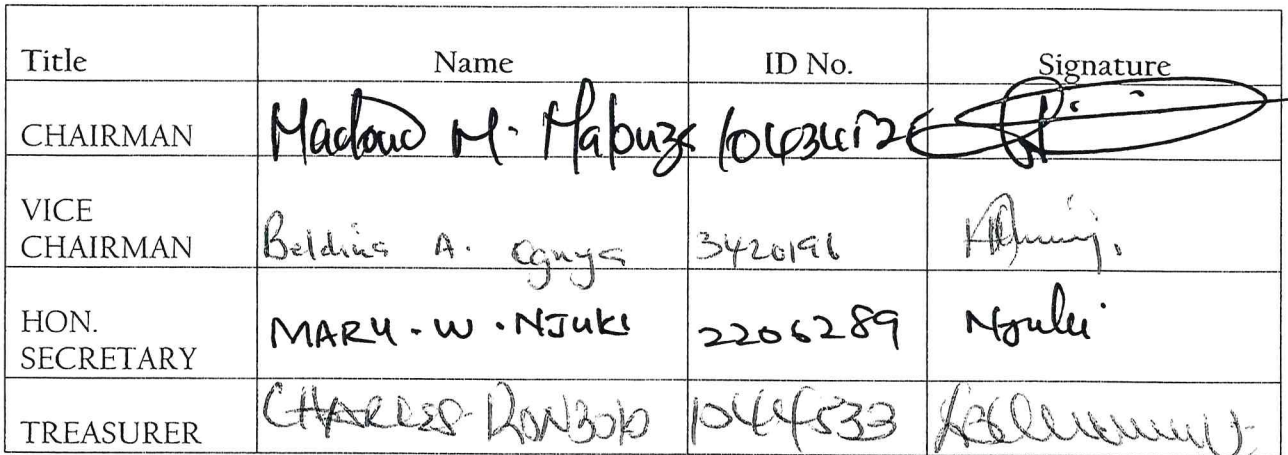 Title Name ID No. Signature
CHAIRMAN M. Mabuza
VICE
CHAIRMAN Beldina A. 3420196
HON.
SECRETARY MARY. W. NJUKI 2206289 Njuki
TREASURER CHARLES 1044533